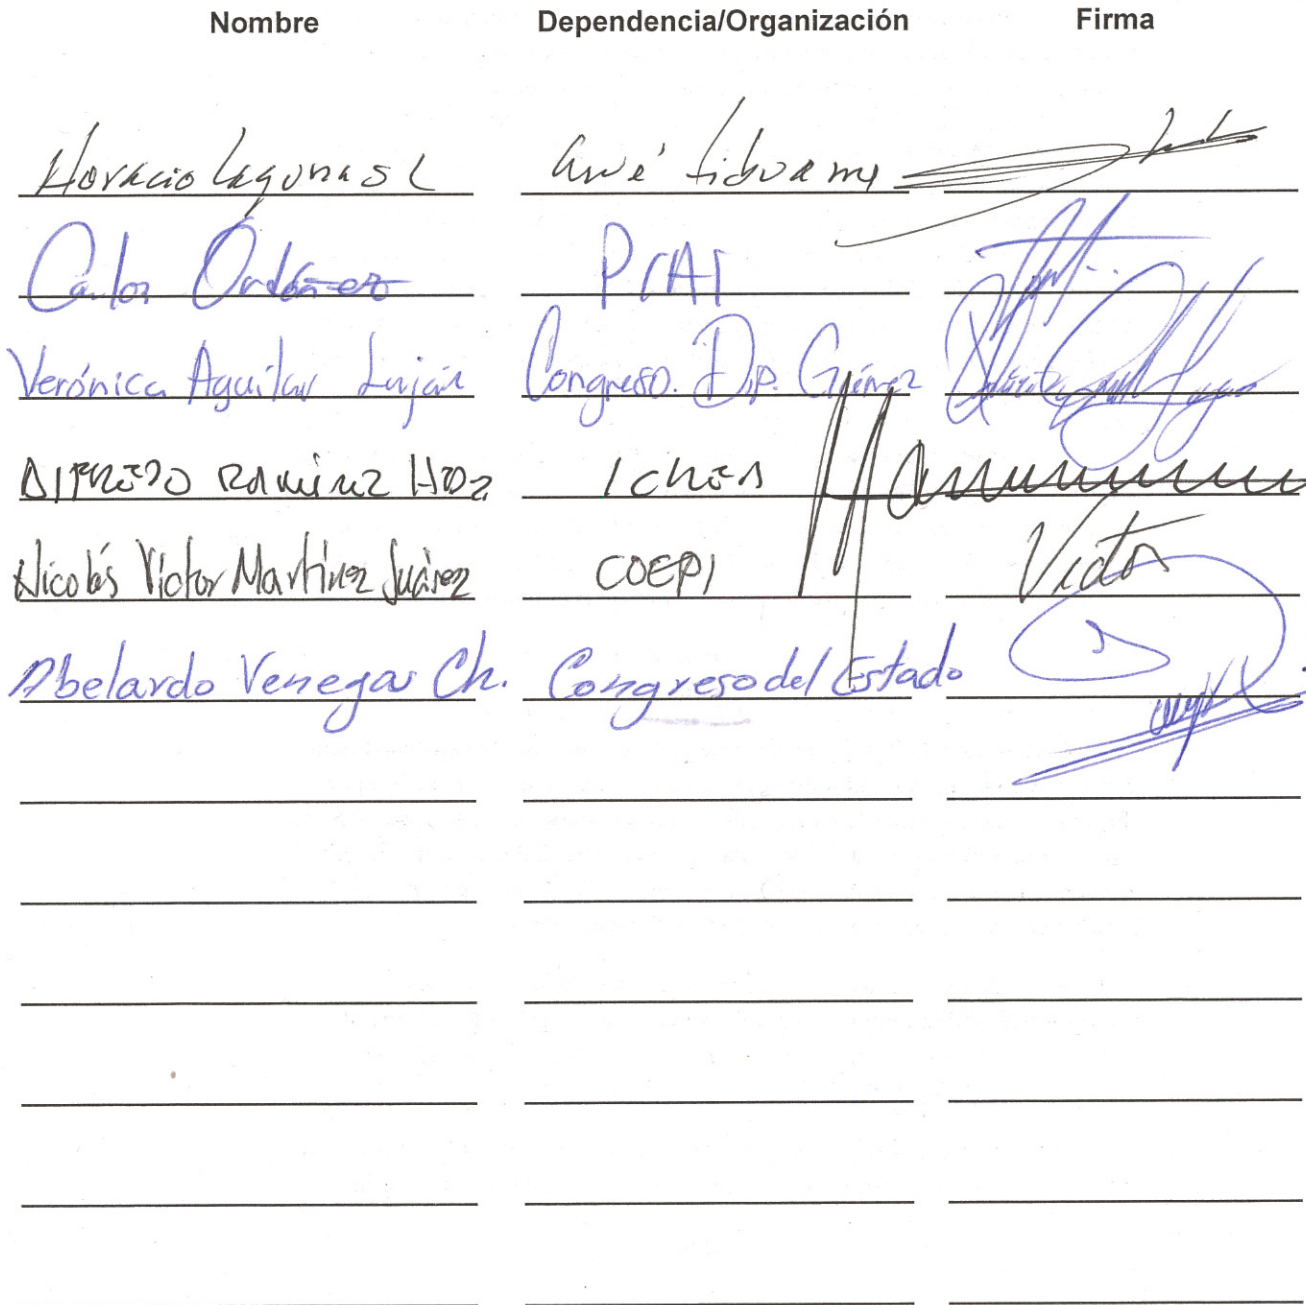 Nombre Dependencia/Organización Firma
Horacio Lagunas L
Carlos Ordóñez PIAI
Verónica Aguilar Luján Congreso. Dip. Gámez
ALFREDO RAMÍREZ HDZ ICHEA
Nicolás Víctor Martínez Juárez COEPI Victor
Abelardo Venegas Ch. Congreso del Estado